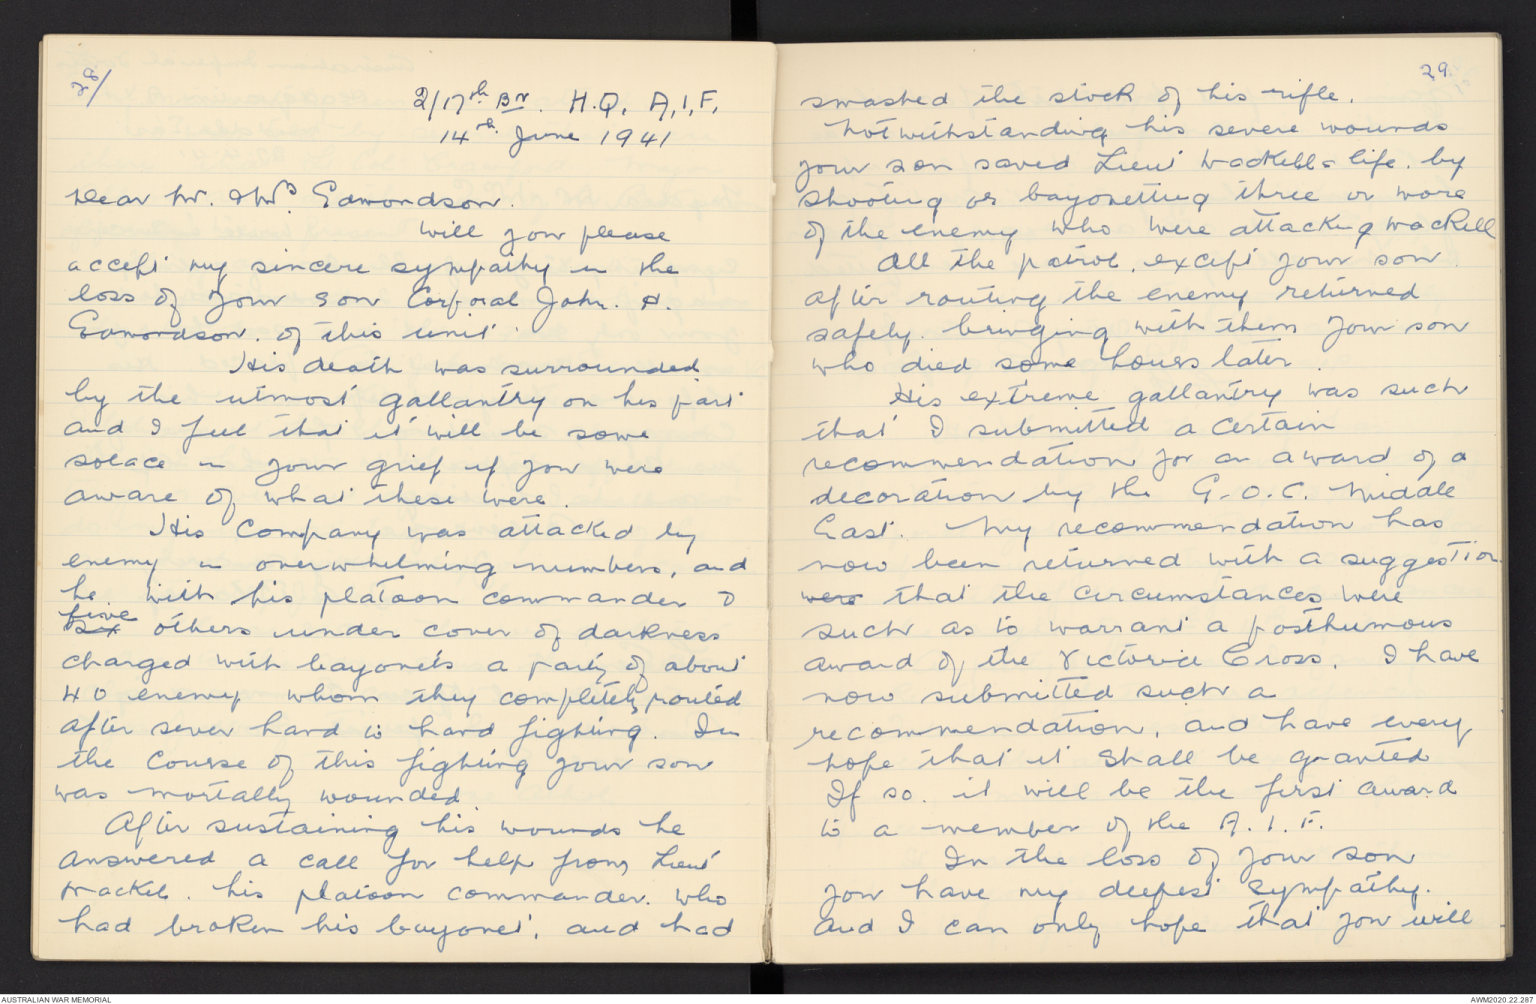 28/
2/17th Bn. H.Q. A.I.F.
14th June 1941
Dear Mr. & Mrs. Edmondson.
Will you please
accept my sincere sympathy in the
loss of your son Corporal John. H.
Edmondson. of this unit.
His death was surrounded
by the utmost gallantry on his part
and I feel that it will be some
solace in your grief if you were
aware of what these were.
His Company was attacked by
enemy in overwhelming numbers, and
he with his platoon commander &
five
six others under cover of darkness
charged with bayonets a party of about
40 enemy whom they completely routed
after sever hand to hand fighting. In
the course of this fighting your son
was mortally wounded.
After sustaining his wounds he
answered a call for help from Lieut
Mackell. his platoon commander. who
had broken his bayonet, and had
29.
smashed the stock of his rifle.
Notwithstanding his severe wounds
your son saved Lieut Mackells life. by
shooting or bayonetting three or more
of the enemy who were attacking Mackell
All the patrol, except your son.
after routing the enemy returned
safely. bringing with them your son
who died some hours later.
His extreme gallantry was such
that I submitted a certain
recommendation for an award of a
decoration by the G.O.C. Middle
East. My recommendation has
now been returned with a suggestion
were that the circumstances were
such as to warrant a posthumous
award of the Victoria Cross. I have
now submitted such a
recommendation, and have every
hope that it shall be granted
If so. it will be the first award
to a member of the A.I.F.
In the loss of your son
you have my deepest sympathy.
and I can only hope that you will
AUSTRALIAN WAR MEMORIAL
AWM2020.22.287